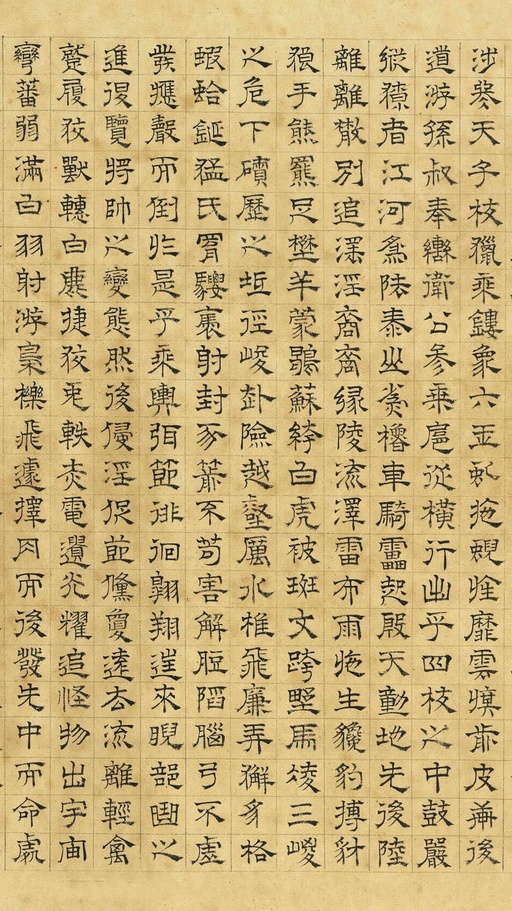 涉冬天子校獵乘鏤象六玉虬拖蜺旌靡雲旗前皮軒後
道游孫叔奉轡衛公參乘扈從橫行出乎四校之中鼓嚴
縱獠者江河為阹泰山為櫓車騎靁起殷天動地先後陸
離離散別追深淫裔裔緣陵流澤雷布雨施生貔豹搏豺
狼手熊羆足壄羊蒙鶡蘇絝白虎被斑文跨壄馬凌三嵕
之危下磧歷之坻徑峻赴險越壑厲水椎飛廉弄獬豸格
蝦蛤鋋猛氏罥騕褭射封豕箭不苟害解脰陷腦弓不虛
發應聲而倒於是乎乘輿弭節徘徊翱翔往來睨部曲之
進退覽將帥之變態然後侵淫促節儵夐遠去流離輕禽
蹵履狡獸轊白鹿捷狡兔軼赤電遺光耀追怪物出宇宙
彎蕃弱滿白羽射游梟櫟飛遽擇肉而後發先中而命處